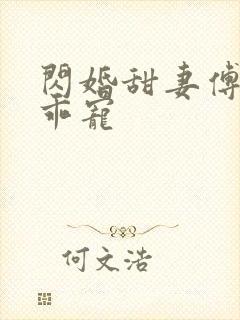 閃婚甜妻傅
乖寵
何文浩